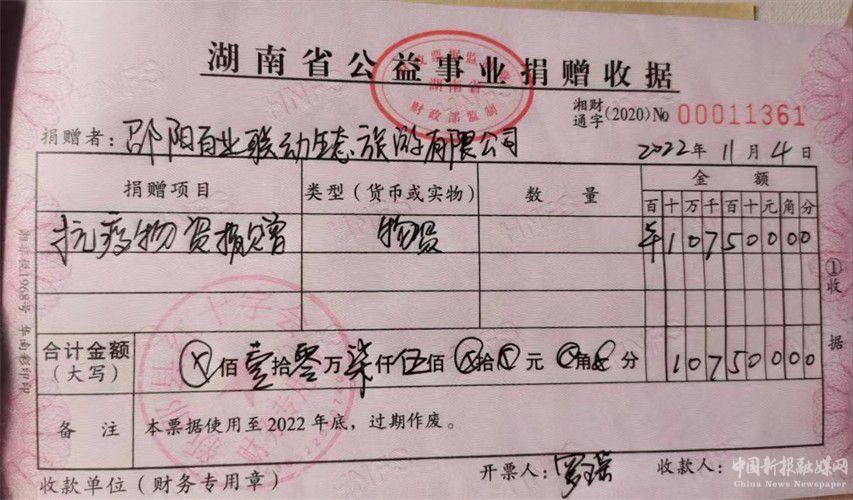 湖南省公益事业捐赠收据
湖南省
财政部监制
湘财通字(2020)No 00011361
捐赠者：邵阳百业联动生态旅游有限公司 2022年11月4日
捐赠项目 类型(货币或实物) 数量 金额
百十万千百十元角分
抗疫物资捐赠 物资 ¥10750000
合计金额(大写) ⊗佰壹拾零万柒仟伍佰⊗拾⊗元⊗角⊗分 10750000
备注 本票据使用至2022年底，过期作废。
收款单位(财务专用章) 开票人： 收款人：
①收据
中国新报融媒网
China News Newspaper